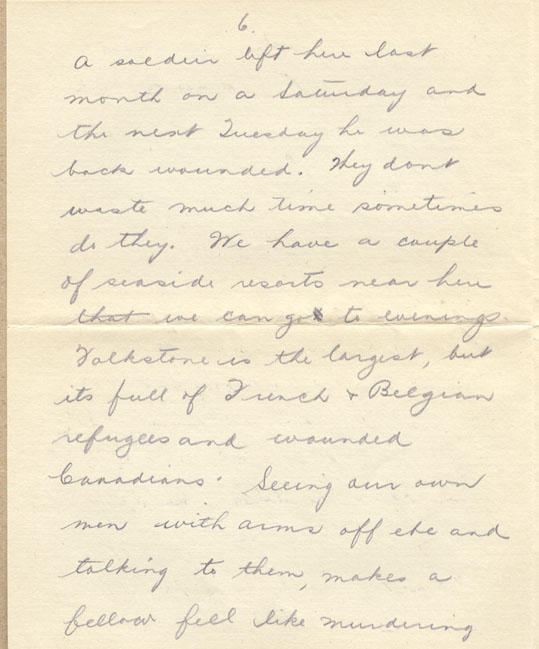 6.
A soldier left here last
month on a Saturday and
the next Tuesday he was
back wounded. They dont
waste much time sometimes
do they. We have a couple
of seaside resorts near here
that we can go to evenings.
Folkstone is the largest, but
its full of French + Belgian
refugees and wounded
Canadians. Seeing our own
men with arms off etc and
talking to them, makes a
fellow fell like murdering